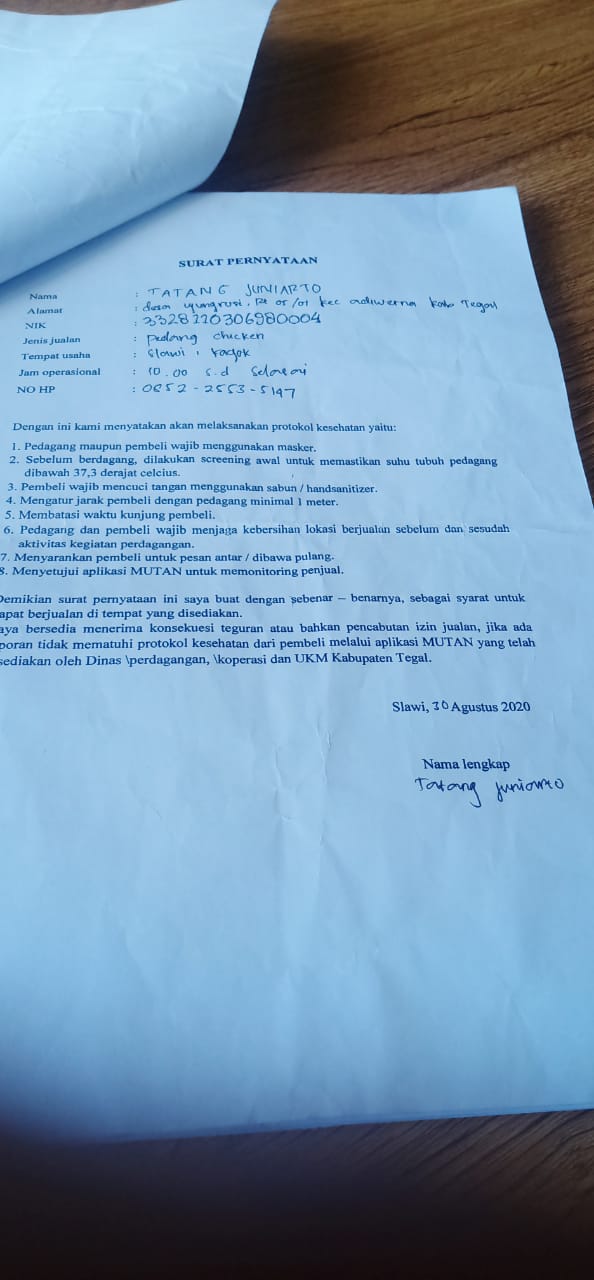 SURAT PERNYATAAN
Nama : TATANG JUNIARTO
Alamat : desa, Rt 05/01 kec adiwerna kab Tegal
NIK : 3328110306980004
Jenis jualan : pedang chicken
Tempat usaha : Slawi,
Jam operasional : 10.00 s.d selesai
NO HP : 0852-2553-5147
Dengan ini kami menyatakan akan melaksanakan protokol kesehatan yaitu:
1. Pedagang maupun pembeli wajib menggunakan masker.
2. Sebelum berdagang, dilakukan screening awal untuk memastikan suhu tubuh pedagang
dibawah 37,3 derajat celcius.
3. Pembeli wajib mencuci tangan menggunakan sabun / handsanitizer.
4. Mengatur jarak pembeli dengan pedagang minimal 1 meter.
5. Membatasi waktu kunjung pembeli.
6. Pedagang dan pembeli wajib menjaga kebersihan lokasi berjualan sebelum dan sesudah
aktivitas kegiatan perdagangan.
7. Menyarankan pembeli untuk pesan antar / dibawa pulang.
8. Menyetujui aplikasi MUTAN untuk memonitoring penjual.
Demikian surat pernyataan ini saya buat dengan sebenar – benarnya, sebagai syarat untuk
apat berjualan di tempat yang disediakan.
aya bersedia menerima konsekuesi teguran atau bahkan pencabutan izin jualan, jika ada
poran tidak mematuhi protokol kesehatan dari pembeli melalui aplikasi MUTAN yang telah
sediakan oleh Dinas \perdagangan, \koperasi dan UKM Kabupaten Tegal.
Slawi, 30 Agustus 2020
Nama lengkap
Tatang juniarto